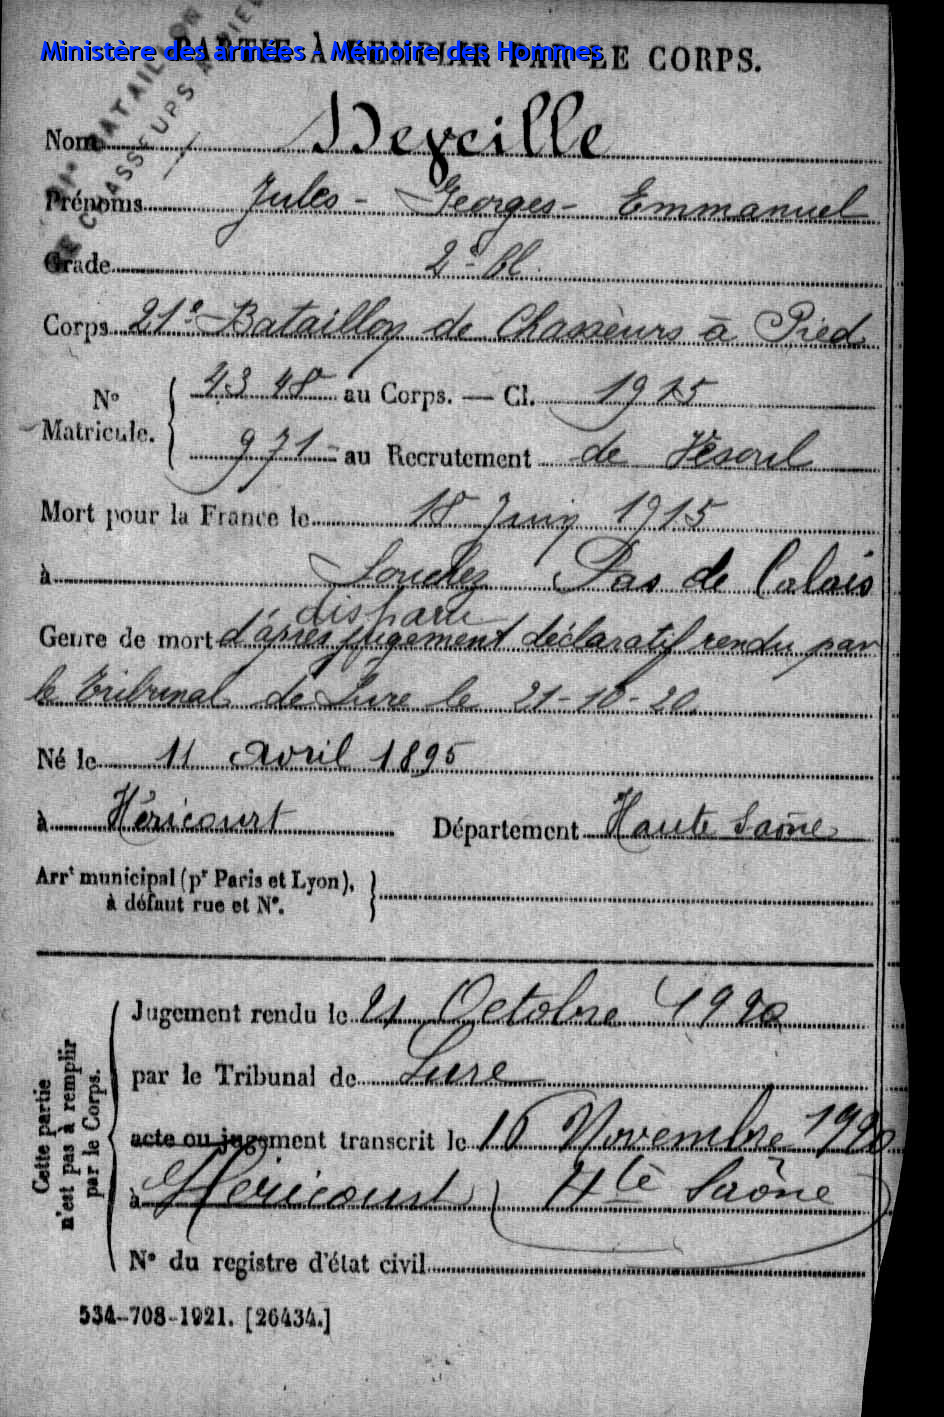 Ministère des armées - Mémoire des Hommes
PARTIE À REMPLIR PAR LE CORPS.
BATAILLON
DE CHASSEURS À PIED
Nom
Prénoms Jules - Georges - Emmanuel
Grade 2e cl.
Corps 21e Bataillon de Chasseurs à Pied
No Matricule. { 4348 au Corps. — Cl. 1915
971 au Recrutement de Vésoul
Mort pour la France le 18 Juin 1915
à Souchez Pas de Calais
disparu
Genre de mort d'après jugement déclaratif rendu par
le tribunal de Lure le 21-10-20
Né le 11 avril 1895
à Héricourt Département Haute Saône
Arrt municipal (pr Paris et Lyon), à défaut rue et No. }
Cette partie n'est pas à remplir par le Corps.
Jugement rendu le 21 Octobre 1920
par le Tribunal de Lure
acte ou jugement transcrit le 16 Novembre 1920
à Héricourt (Hte Saône)
No du registre d'état civil
534-708-1921. [26434.]